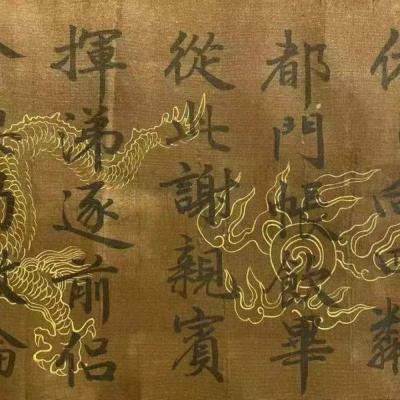 向四鄰
都門帳飲畢
從此謝親賓
揮涕逐前侶